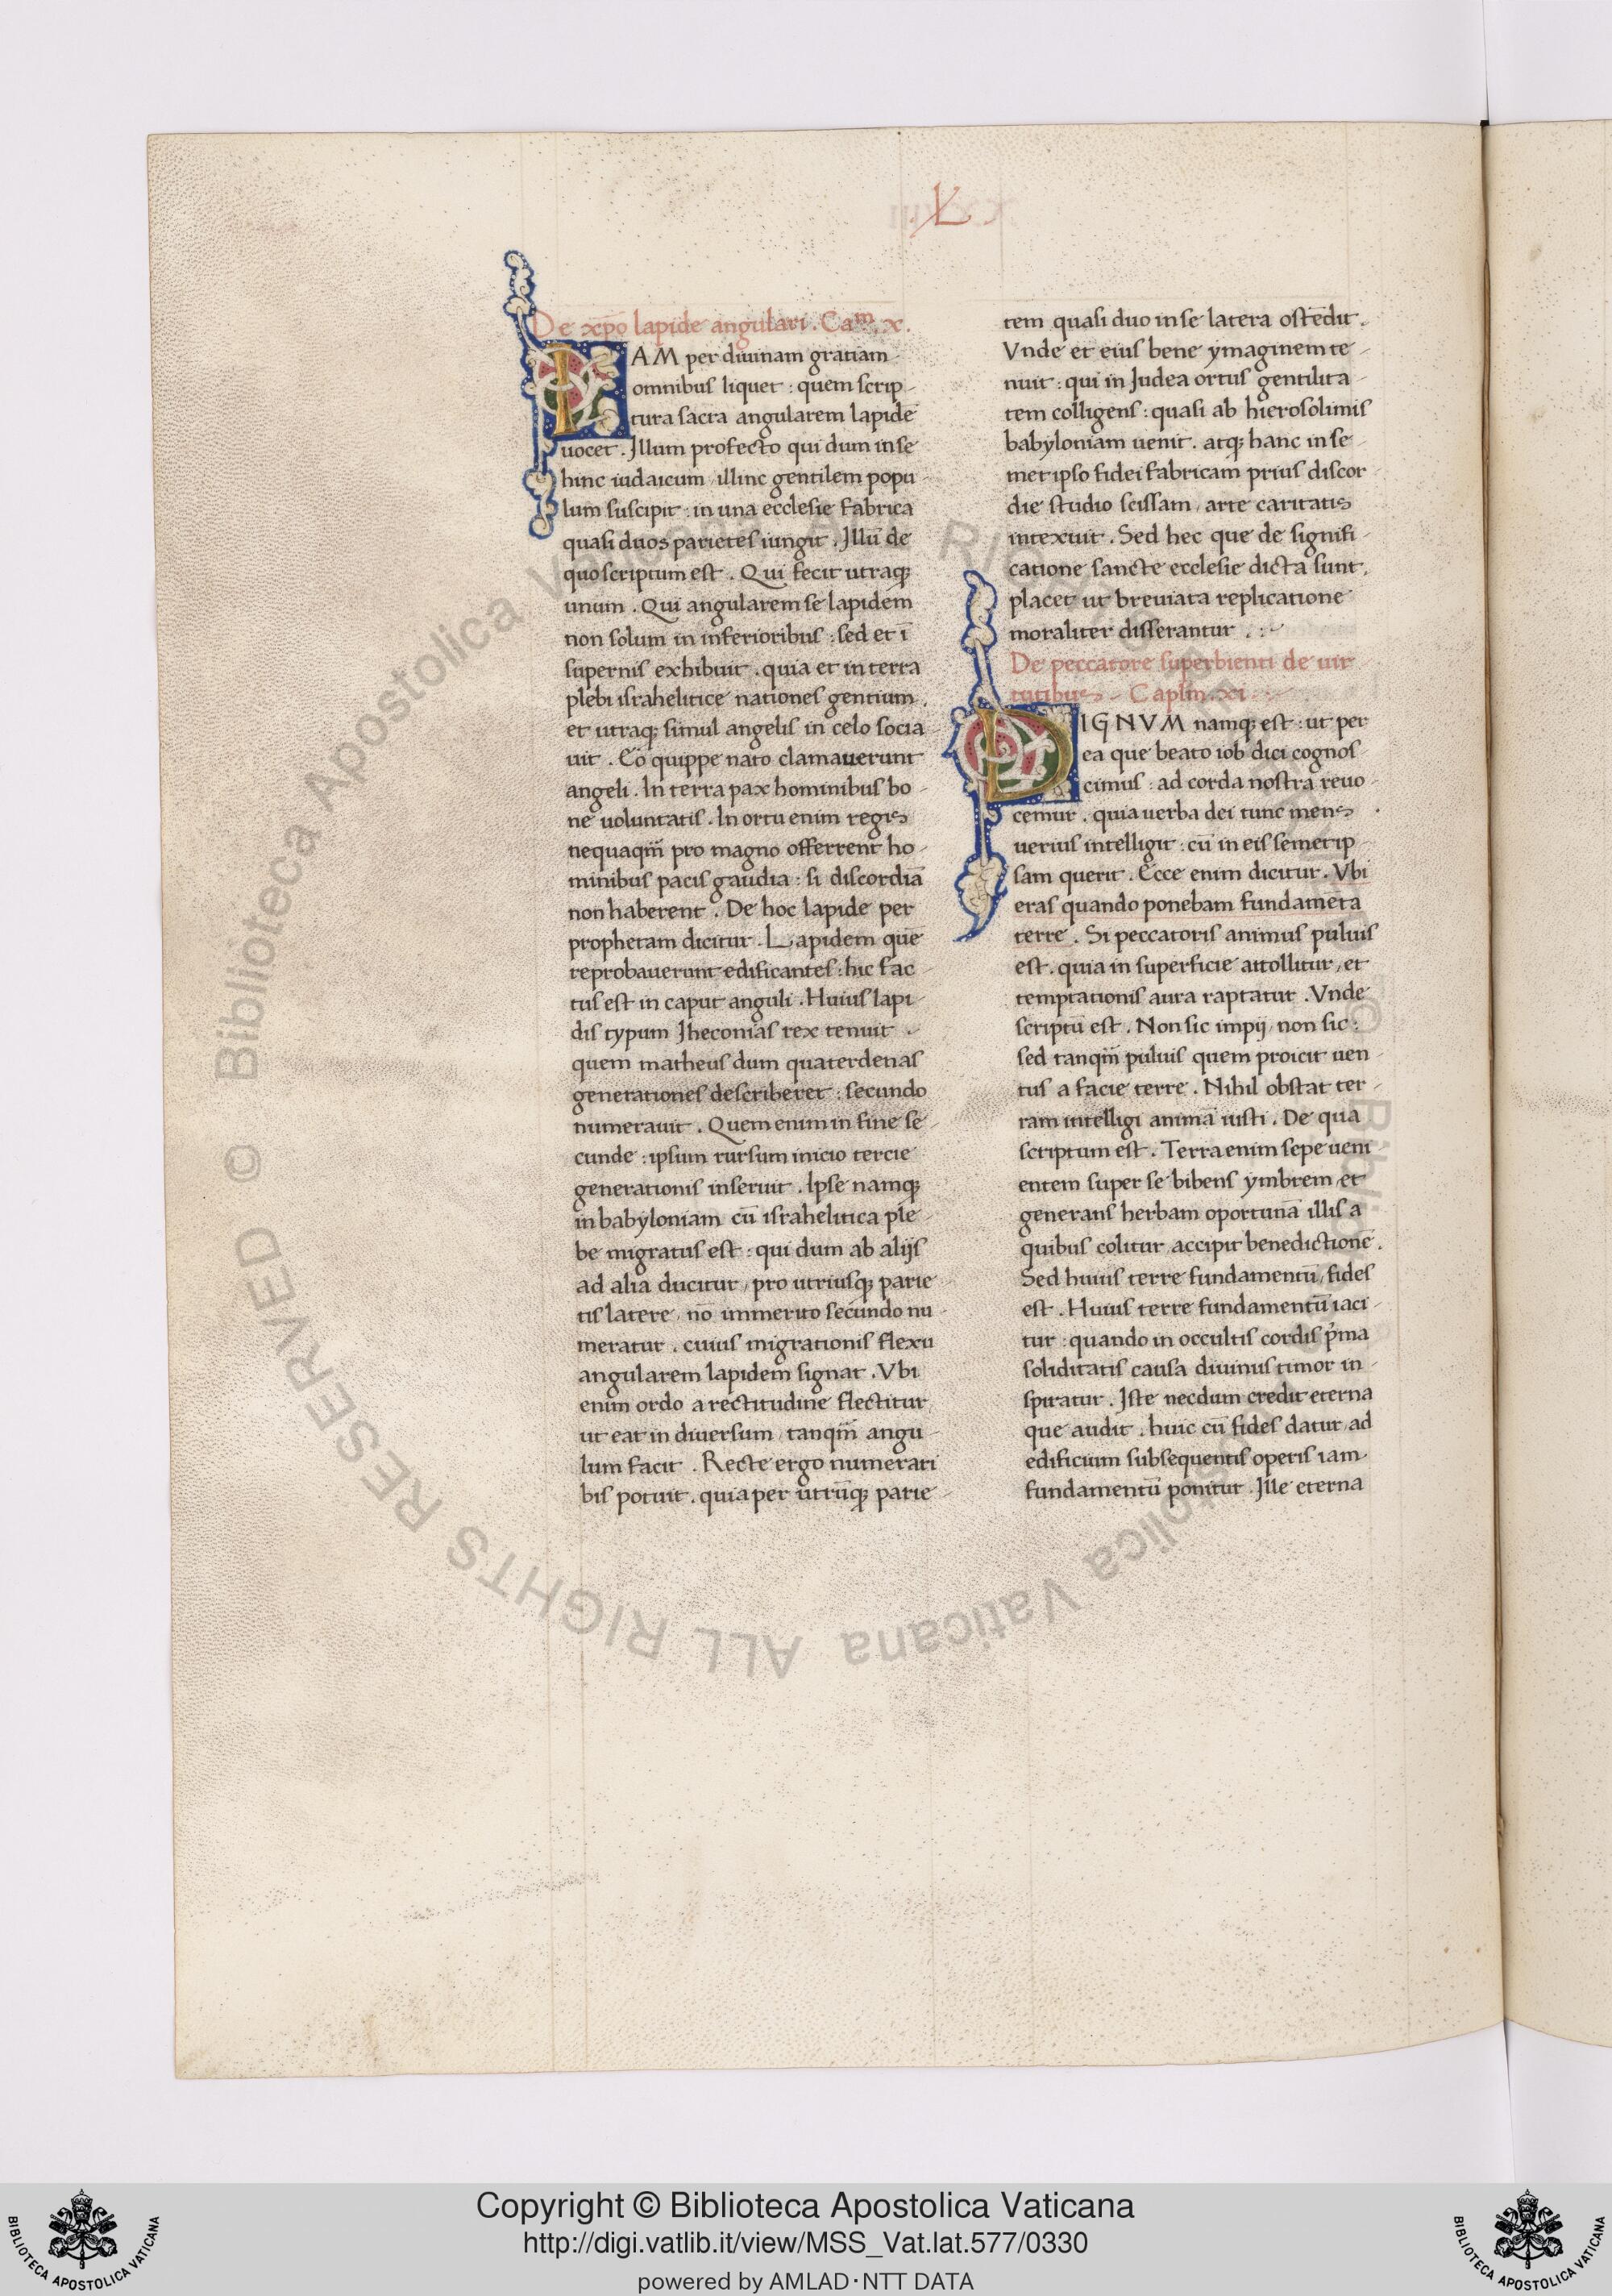 .XL
De xp̄o lapide angulari . Caᵐ. x.
IAM per diuinam gratiam
omnibus liquet : quem scrip-
tura sacra angularem lapidē
uocet . Illum profecto qui dum in se
hinc iudaicum / illinc gentilem popu-
lum suscipit : in una ecclesie fabrica
quasi duos parietes iungit . Illū de
quo scriptum est . Qui fecit utraqꝫ
unum . Qui angularem se lapidem
non solum in inferioribus : sed et ī
supernis exhibuit . quia et in terra
plebi israhelitice nationes gentium ,
et utraqꝫ simul angelis in celo socia
uit . Eo quippe nato clamauerunt
angeli . In terra pax hominibus bo-
ne uoluntatis . In ortu enim regis
nequaqm̄ pro magno offerrent ho-
minibus pacis gaudia : si discordiā
non haberent . De hoc lapide per
prophetam dicitur . Lapidem quē
reprobauerunt edificantes : hic fac-
tus est in caput anguli . Huius lapi-
dis typum Jheconias rex tenuit .
quem matheus dum quaterdenas
generationes describeret : secundo
numerauit . Quem enim in fine se-
cunde : ipsum rursum inicio tercie
generationis inseruit . Ipse namqꝫ
in babyloniam cū israhelitica ple-
be migratus est : qui dum ab alijs
ad alia ducitur / pro utriusqꝫ parie
tis latere / nō immerito secundo nu
meratur . cuius migrationis flexu
angularem lapidem signat . Vbi
enim ordo a rectitudine flectitur,
ut eat in diuersum / tanqm̄ angu-
lum facit . Recte ergo numerari
bis potuit . quia per utrūqꝫ parie-
tem quasi duo in se latera ostēdit .
Vnde et eius bene ymaginem te-
nuit : qui in Judea ortus gentilita-
tem colligens : quasi ab hierosolimis
babyloniam uenit . atqꝫ hanc in se-
met ipso fidei fabricam prius discor-
die studio scissam / arte caritatis
intexuit . Sed hec que de signifi-
catione sancte ecclesie dicta sunt,
placet ut breuiata replicatione
moraliter disserantur . : -
De peccatore superbienti de uir
tutibus - Caplm̄ xi
DIGNVM namqꝫ est : ut per
ea que beato iob dici cognos-
cimus : ad corda nostra reuo-
cemur . quia uerba dei tunc mens
uerius intelligit : cū in eis semetip-
sam querit . Ecce enim dicitur . Vbi
eras quando ponebam fundamēta
terre . Si peccatoris animus puluis
est . quia in superficie attollitur / et
temptationis aura raptatur . Vnde
scriptū est . Non sic impij / non sic :
sed tanqm̄ puluis quem proicit uen-
tus a facie terre . Nihil obstat ter-
ram intelligi animā iusti . De qua
scriptum est . Terra enim sepe ueni-
entem super se bibens ymbrem / et
generans herbam oportunā illis a
quibus colitur / accipit benedictionē .
Sed huius terre fundamentū / fides
est . Huius terre fundamentū iaci-
tur : quando in occultis cordis pͥma
soliditatis causa diuinus timor in-
spiratur . Iste necdum credit eterna
que audit . huic cū fides datur / ad
edificium subsequentis operis iam
fundamentū ponitur . Ille eterna
© Biblioteca Apostolica Vaticana ALL RIGHTS RESERVED
Copyright © Biblioteca Apostolica Vaticana
http://digi.vatlib.it/view/MSS_Vat.lat.577/0330
powered by AMLAD·NTT DATA
BIBLIOTECA APOSTOLICA VATICANA
BIBLIOTECA APOSTOLICA VATICANA